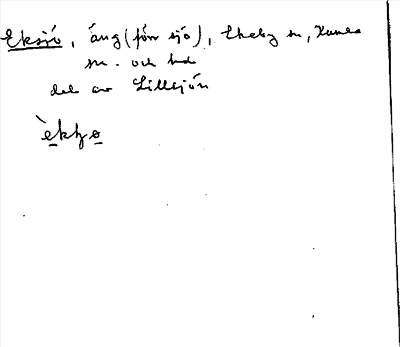 Eksjö, äng (förr sjö), Ekeby sn, Kumla
sn. och hd
del av Lillsjön
èkʃo